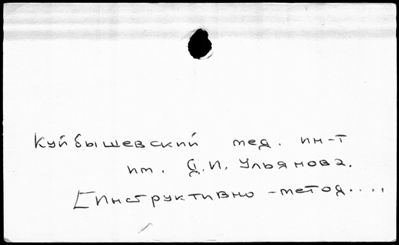 Куйбышевский мед. ин-т
им. Д.И. Ульянова.
[Инструктивно-метод....